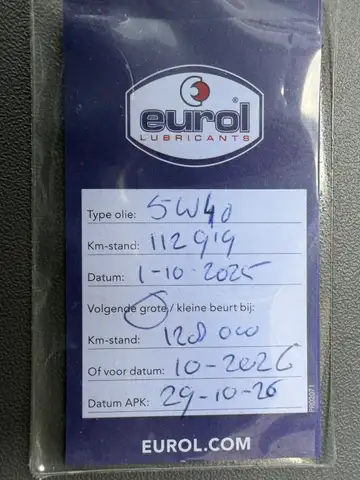 eurol®
LUBRICANTS
Type olie: 5W40
Km-stand: 112919
Datum: 1-10-2025
Volgende grote / kleine beurt bij:
Km-stand: 128 000
Of voor datum: 10-2026
Datum APK: 29-10-26
EUROL.COM